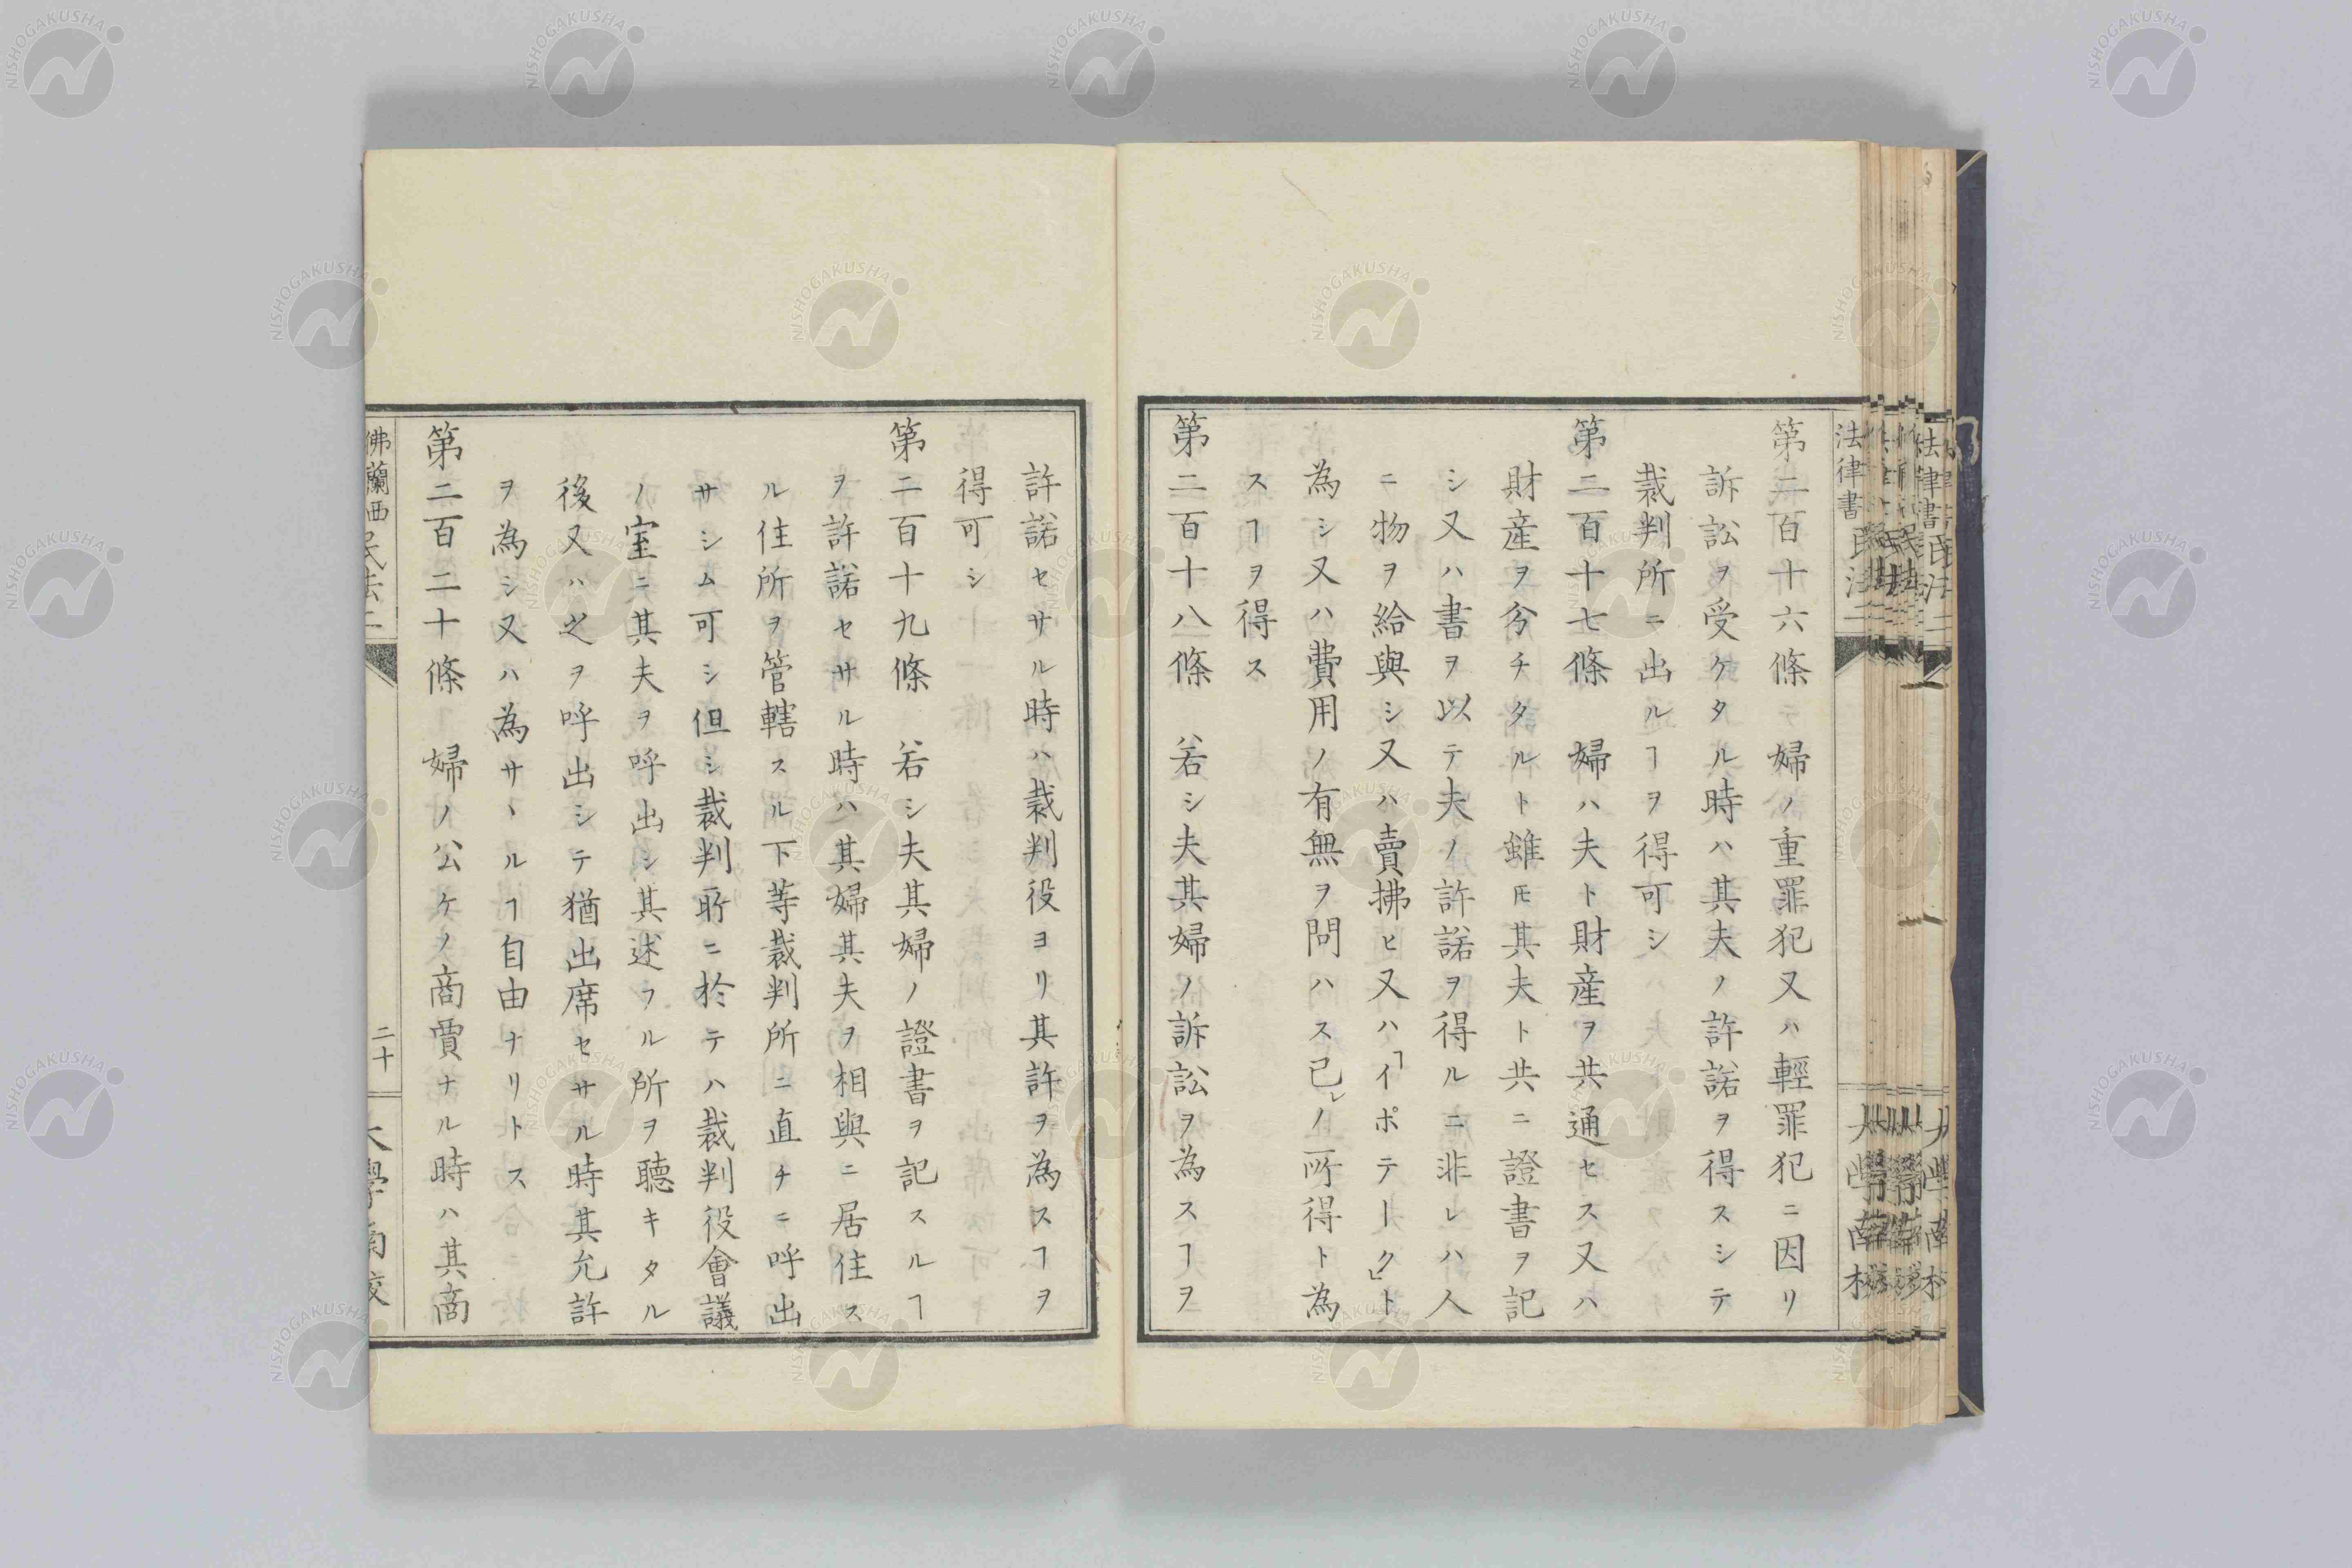 法律書
民法二
第二百十六條 婦ノ重罪犯又ハ輕罪犯ニ因リ
訴訟ヲ受ケタル時ハ其夫ノ許諾ヲ得スシテ
裁判所ニ出ルヿヲ得可シ
第二百十七條 婦ハ夫ト財産ヲ共通セス又ハ
財産ヲ分チタルト雖𪜈其夫ト共ニ證書ヲ記
シ又ハ書ヲ以テ夫ノ許諾ヲ得ルニ非レハ人
ニ物ヲ給與シ又ハ賣拂ヒ又ハ「イポテーク」ト
為シ又ハ費用ノ有無ヲ問ハス己レノ所得ト為
スヿヲ得ス
第二百十八條 若シ夫其婦ノ訴訟ヲ為スヿヲ
許諾セサル時ハ裁判役ヨリ其許ヲ為スヿヲ
得可シ
第二百十九條 若シ夫其婦ノ證書ヲ記スルヿ
ヲ許諾セサル時ハ其婦其夫ヲ相與ニ居住ス
ル住所ヲ管轄スル下等裁判所ニ直チニ呼出
サシム可シ但シ裁判所ニ於テハ裁判役會議
ノ室ニ其夫ヲ呼出シ其述フル所ヲ聽キタル
後又ハ之ヲ呼出シテ猶出席セサル時其允許
ヲ為シ又ハ為サヽルヿ自由ナリトス
第二百二十條 婦ノ公ケノ商賈ナル時ハ其商
佛蘭西民法二
二十
大學南校
NISHOGAKUSHA